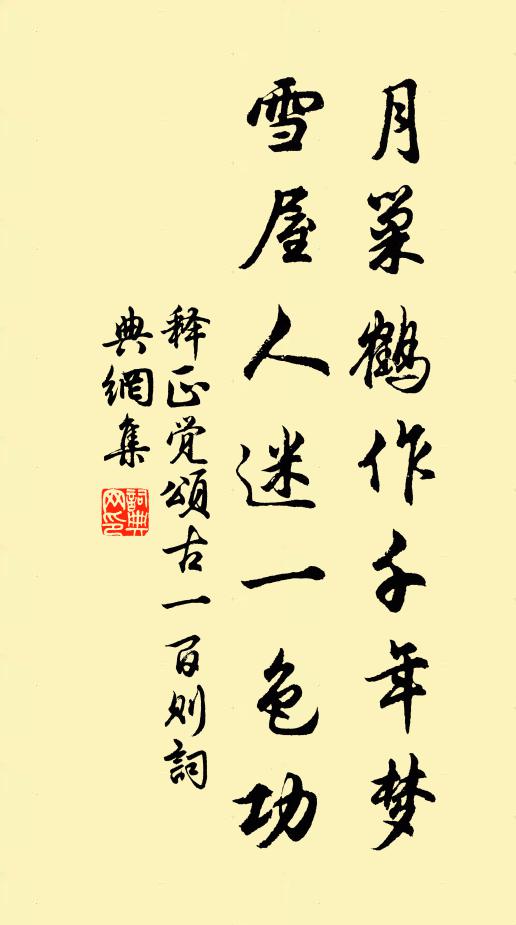 月巢鹤作千年梦
雪屋人迷一色功
释正觉颂古一百则詞
典網集
詞典
网印